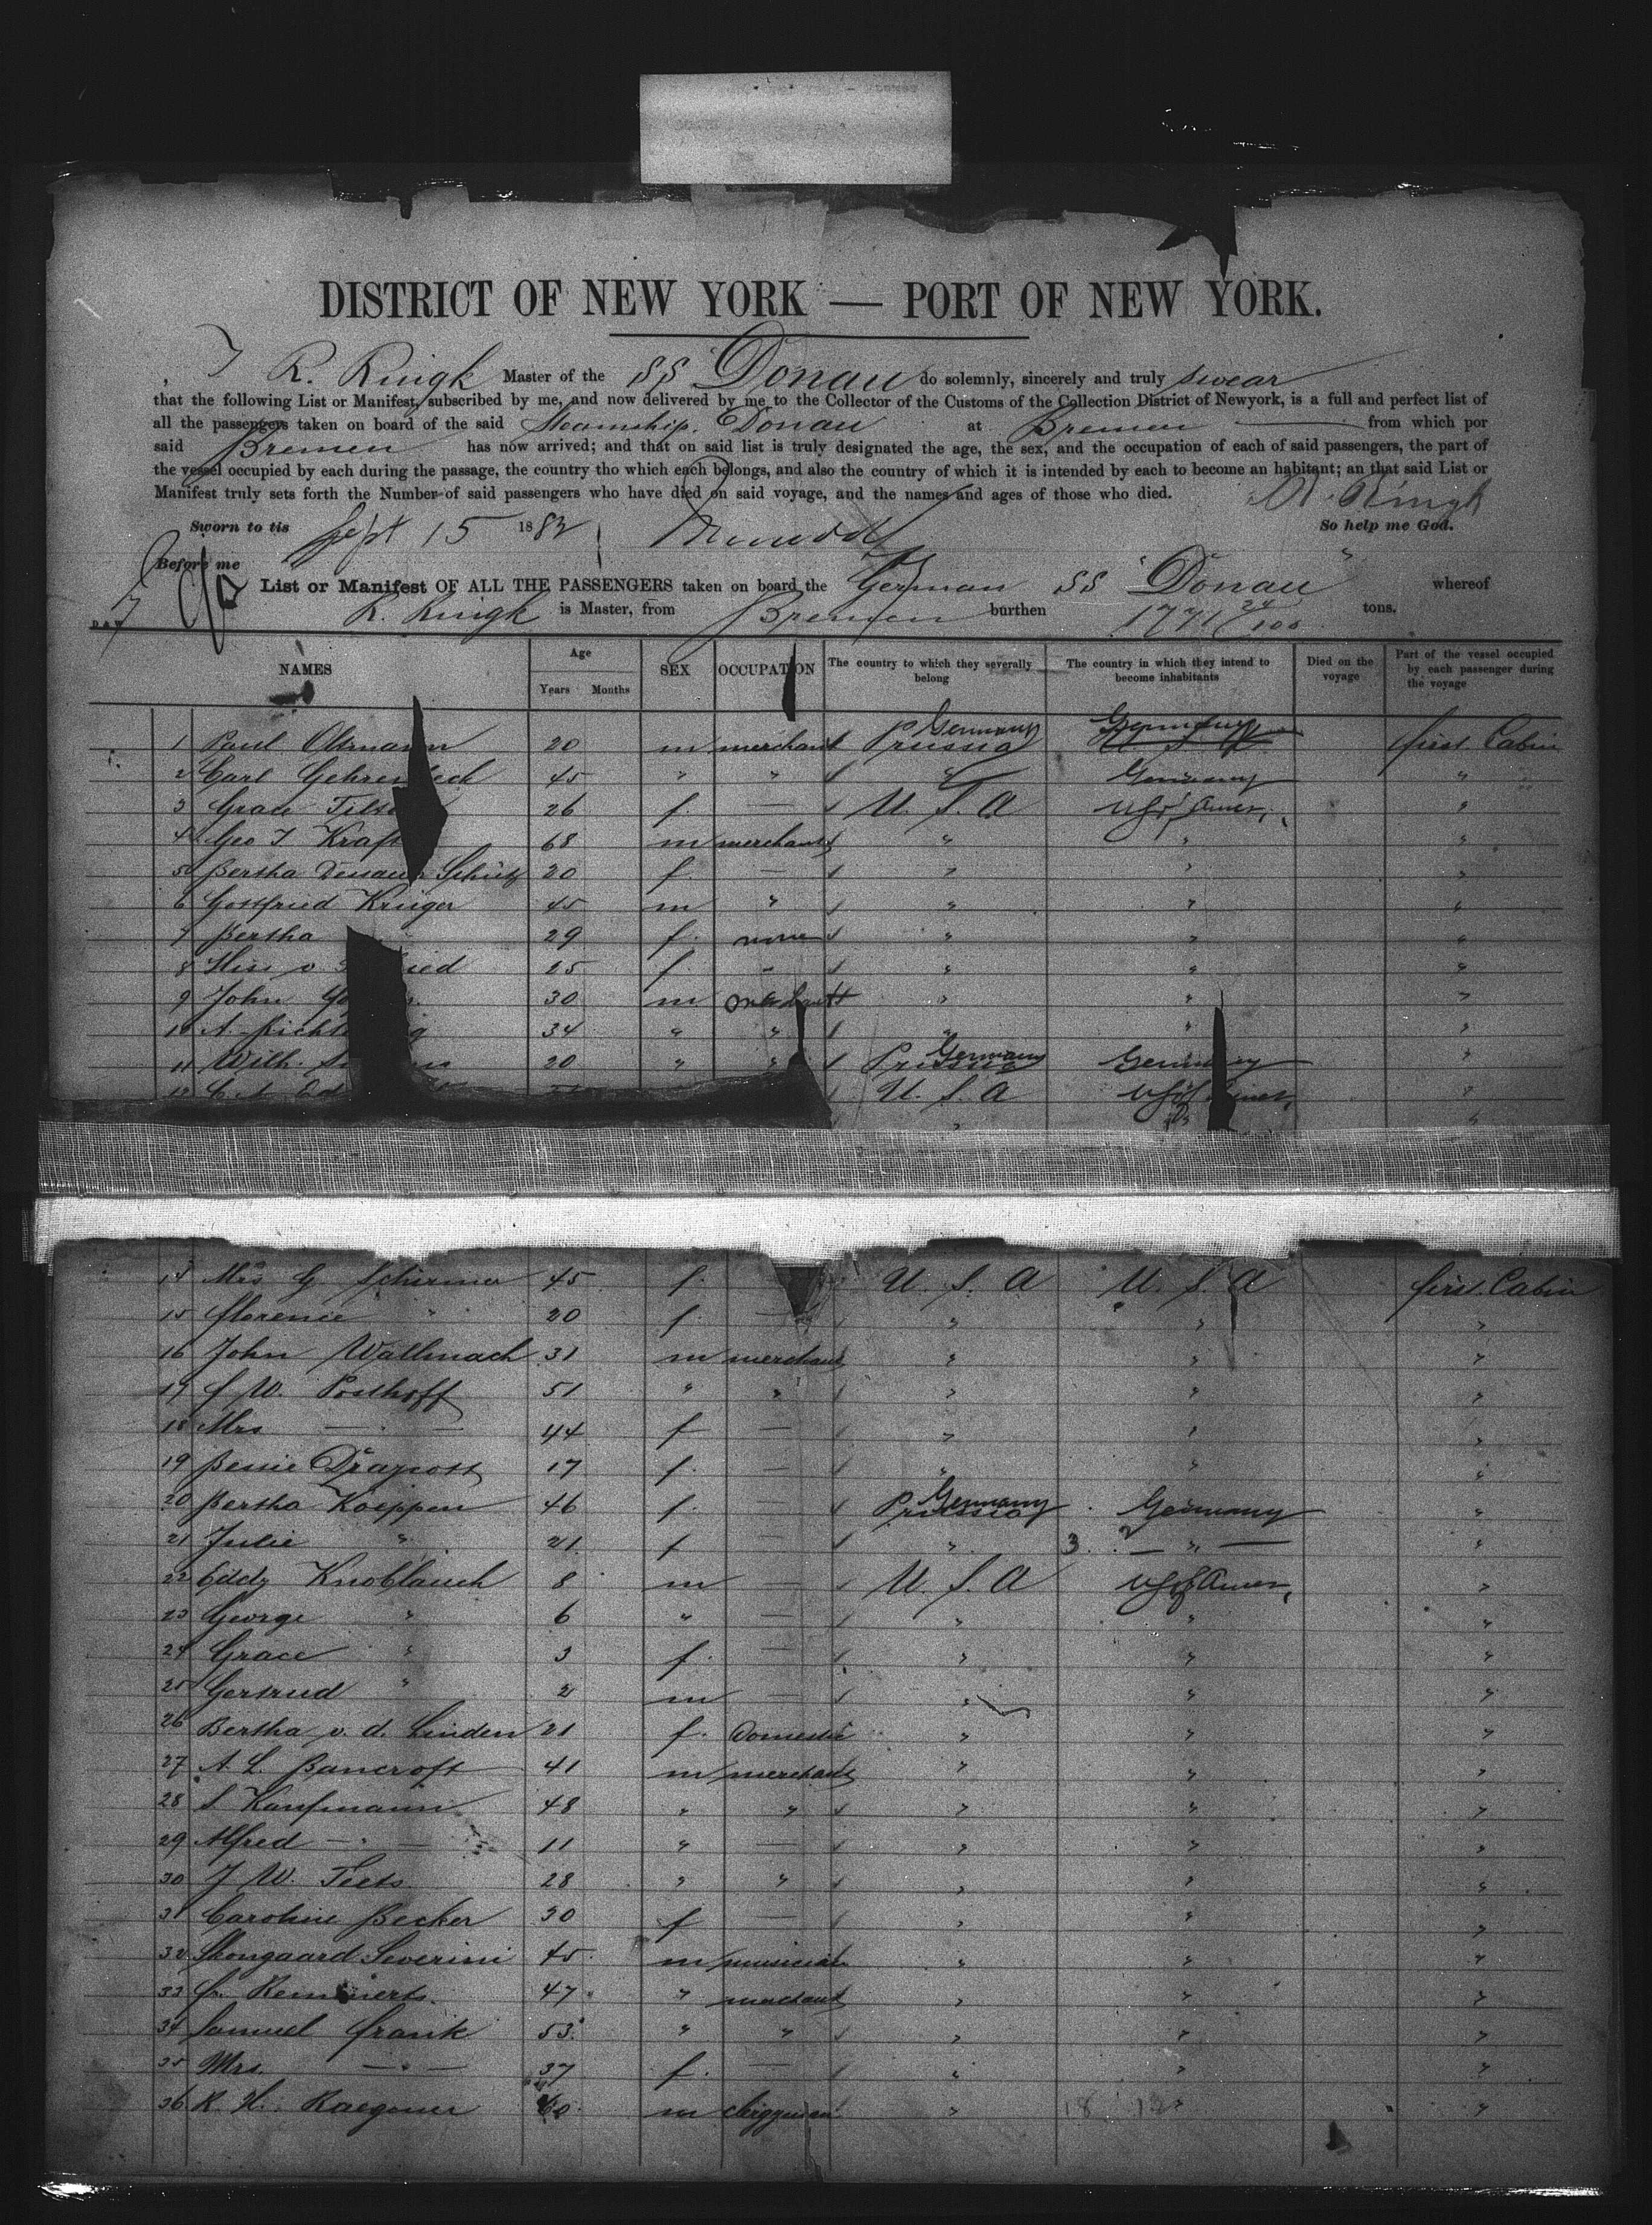 DISTRICT OF NEW YORK — PORT OF NEW YORK.
I R. Ringk Master of the SS Donau do solemnly, sincerely and truly swear
that the following List or Manifest, subscribed by me, and now delivered by me to the Collector of the Customs of the Collection District of Newyork, is a full and perfect list of
all the passengers taken on board of the said Steamship Donau at Bremen from which por
said Bremen has now arrived; and that on said list is truly designated the age, the sex, and the occupation of each of said passengers, the part of
the vessel occupied by each during the passage, the country tho which each belongs, and also the country of which it is intended by each to become an habitant; an that said List or
Manifest truly sets forth the Number of said passengers who have died on said voyage, and the names and ages of those who died. R. Ringk
Sworn to tis Sept 15 1882 So help me God.
Before me
List or Manifest OF ALL THE PASSENGERS taken on board the German SS "Donau" whereof
R. Ringk is Master, from Bremen burthen 1771 24/100 tons.
NAMES Age Years Months SEX OCCUPATION The country to which they severally belong The country in which they intend to become inhabitants Died on the voyage Part of the vessel occupied by each passenger during the voyage
1 Paul 20 m merchant Prussia Germany Germany first Cabin
2 Carl 45 " " " Germany "
3 Grace 26 f. — U. S. A "
4 Geo T Kraft 68 m merchant " " "
5 Bertha Schütz 20 f. — " " "
6 Gottfried Krüger 45 m " " " "
7 Bertha 29 f. none " " "
8 25 f. " " " "
9 John 30 m " " "
10 A. 34 " " " " "
11 Wilh. 20 " " Prussia Germany Germany "
12 U. S. A "
14 Mrs G. Schirmer 45 f. U. S. A U. S. A first Cabin
15 Florence " 20 f. — " " "
16 John Wallmach 31 m merchant " " "
17 F W. Posthoff 51 " " " " "
18 Mrs — " — 44 f — " " "
19 Bessie 17 f. — " " "
20 Bertha Koeppen 46 f. — Prussia Germany Germany "
21 Julie " 21 f — " 3 — " — "
22 Eddy Knoblauch 8 m — U. S. A U S of Amer. "
23 George " 6 " — " " "
24 Grace " 3 f. — " " "
25 Gertrud " 2 m — " " "
26 Bertha v. d. Linden 21 f. Domestic " " "
27 A. L. Bancroft 41 m merchant " " "
28 S. Kaufmann 48 " " " " "
29 Alfred — " — 11 " — " " "
30 J W. Teets 28 " " " " "
31 Caroline Becker 30 f — " " "
32 Skongaard Severini 45 m musician " " "
33 47 " merchant " " "
34 Samuel Frank 53 " " " " "
35 Mrs. — " — 37 f. — " " "
36 R. H. Raegener 60 m clergyman " " "